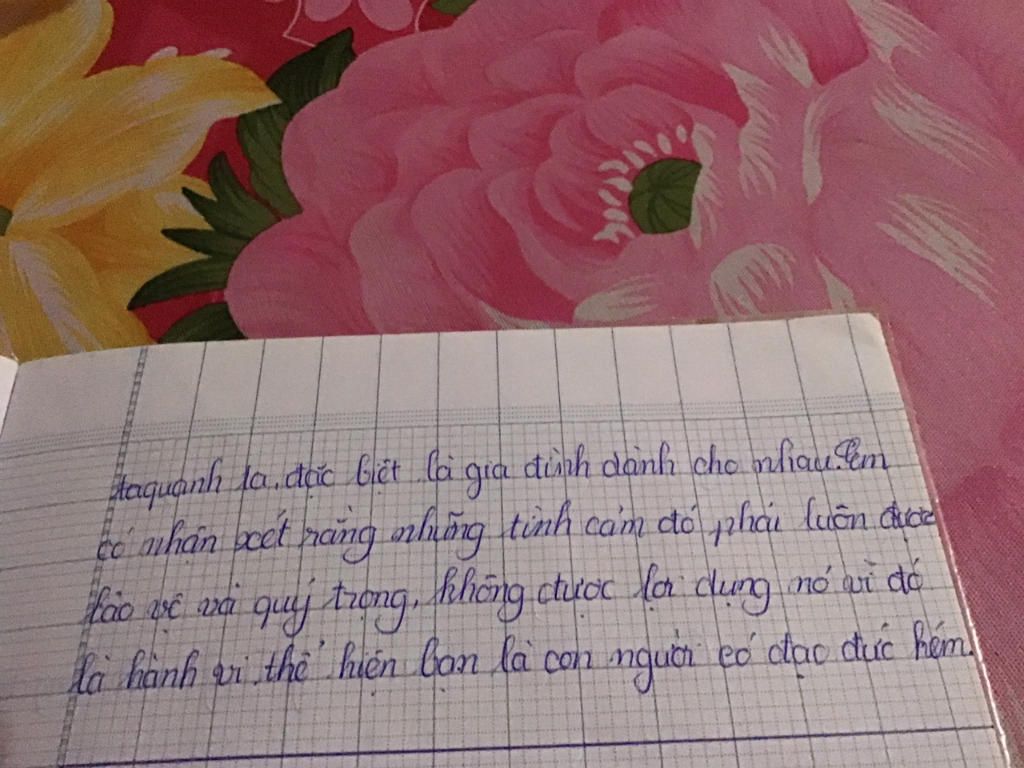 taquanh ta, đặc biệt là gia đình dành cho nhau. Em
có nhận xét rằng những tình cảm đó phải luôn được
bảo vệ và quý trọng, không được lợi dụng nó vì đó
là hành vi thể hiện bạn là con người có đạo đức kém.